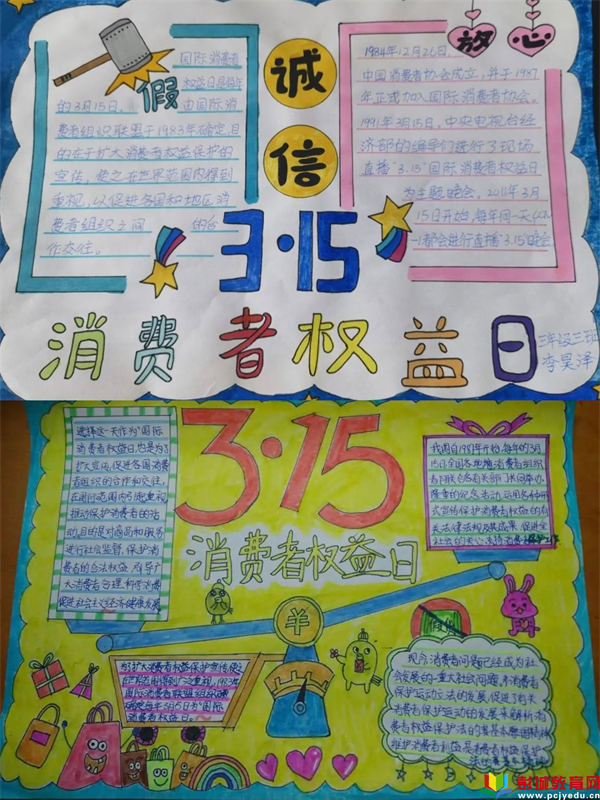 假
国际消费者
权益日是每年
的3月15日。由国际消
费者组织联盟于1983年确定，目
的在于扩大消费者权益保护的
宣传，使之在世界范围内得到
重视，以促进各国和地区消
费者组织之间的合
作交往。
诚
信
3·15
放心
1984年12月26日，
中国消费者协会成立，并于1987
年正式加入国际消费者协会。
1991年3月15日，中央电视台经
济部的编导们进行了现场
直播"3.15"国际消费者权益日
为主题晚会。2011年3月
15日开始，每年同一天
都会进行直播"3.15"晚会
消费者权益日
三年级三班
李昊泽
3·15
消费者权益日
选择这一天作为"国际
消费者权益日，也是为了
扩大宣传，促进各国消费
者组织的合作和交往，
在国际范围内引起重视
推动保护消费者的活
动，目的是对商品和服务
进行社会监督，保护消
费者的合法权益，引导广
大消费者合理、科学消费
促进社会主义经济健康发展
我国自1987年开始，每年的3月
15日，全国各地消费者组织
都联合各有关部门共同举办
隆重的纪念活动，运用各种形
式宣传保护消费者权益的有
关法律法规及其成果，促进全
社会都关心、支持消费者保护工作
羊
为了扩大消费者权益保护宣传，使之
在世界范围得到广泛重视，1983年
国际消费者联盟组织确
确定每年3月15日为"国际
消费者权益日。
现今，消费者问题已经成为社
会发展的一重大社会问题，未消费者
保护运动立法的发展，促进了有关
消费者保护运动的发展，来解析消
费者权益保护法的其基本原则精神
维护消费者利益是消费者权益保护
彭城教育网
www.pcjyedu.cn